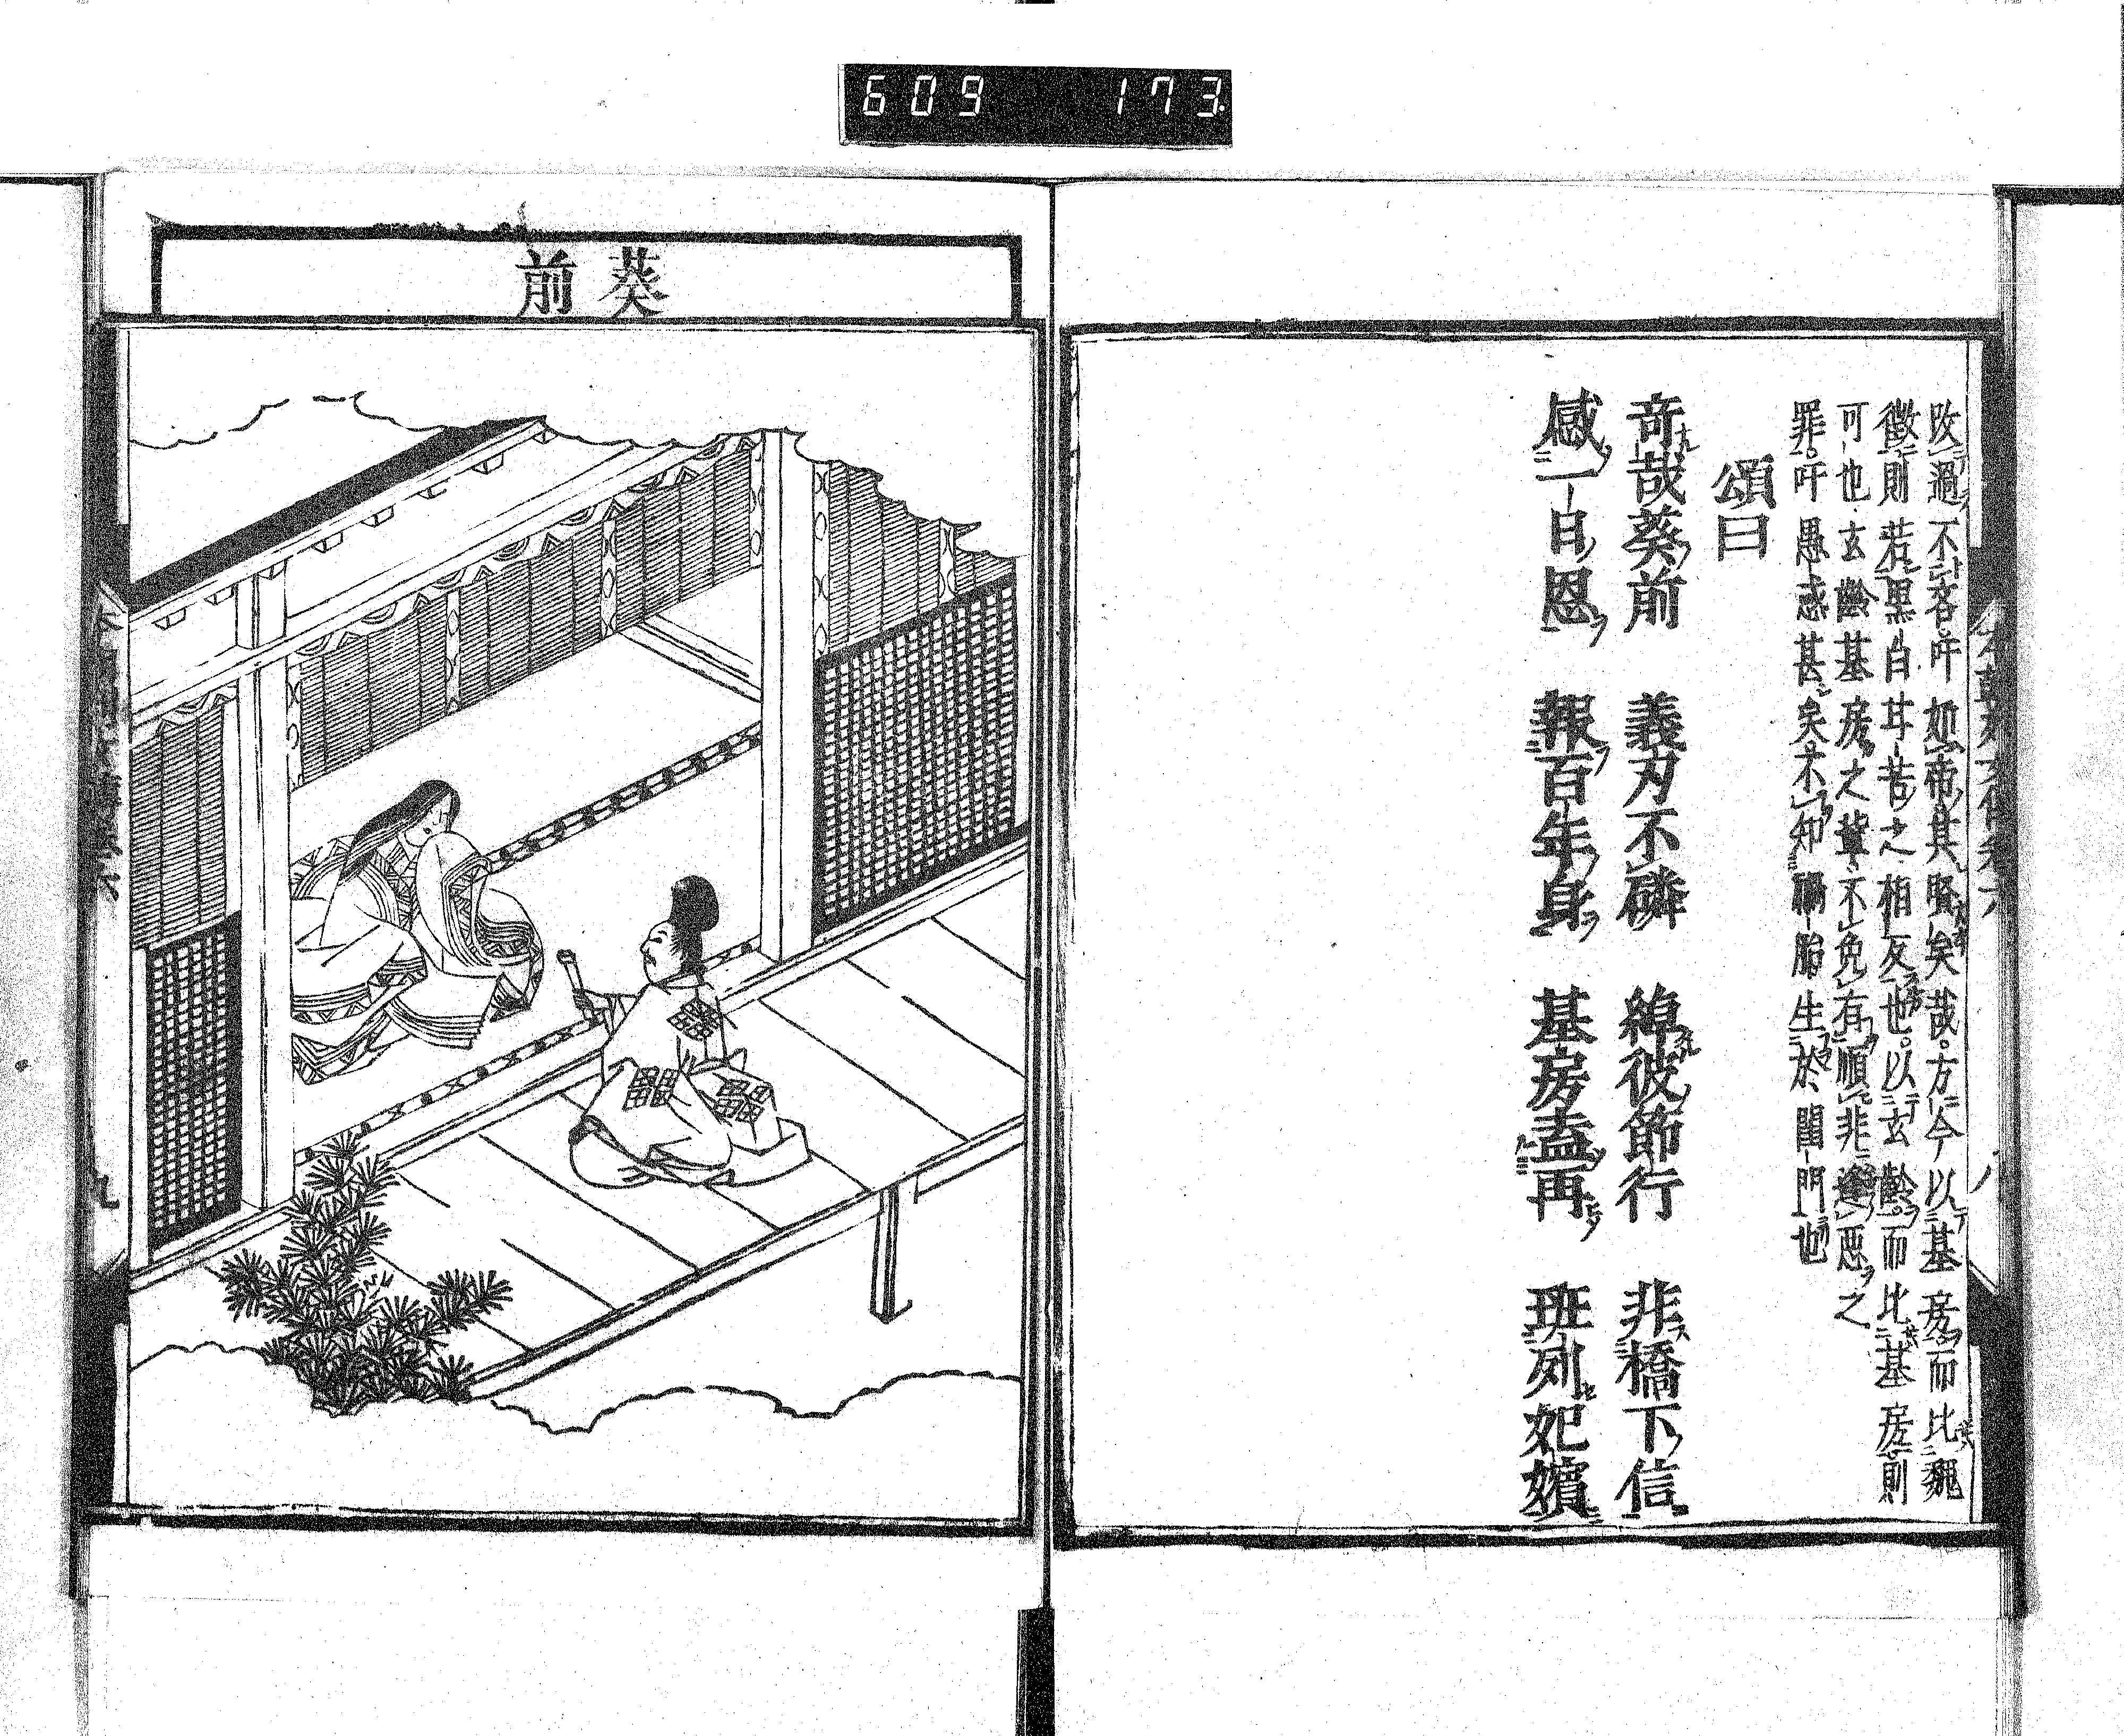 609 173
改過不吝吁如帝其賢矣哉。方今以基房而比魏
徵則若黒白耳苦之相反也。以玄齡而比基房則
可也玄齡基房之輩不免有順非逢惡之
罪。吁愚惑甚矣不知禍胎生於閨門也
頌曰
奇哉葵前 義刃不磷 綽彼節行 非橋下信
感一日恩 報百年身 基房盍再 班列妃嬪
本朝列女傳卷六 八
葵前
九